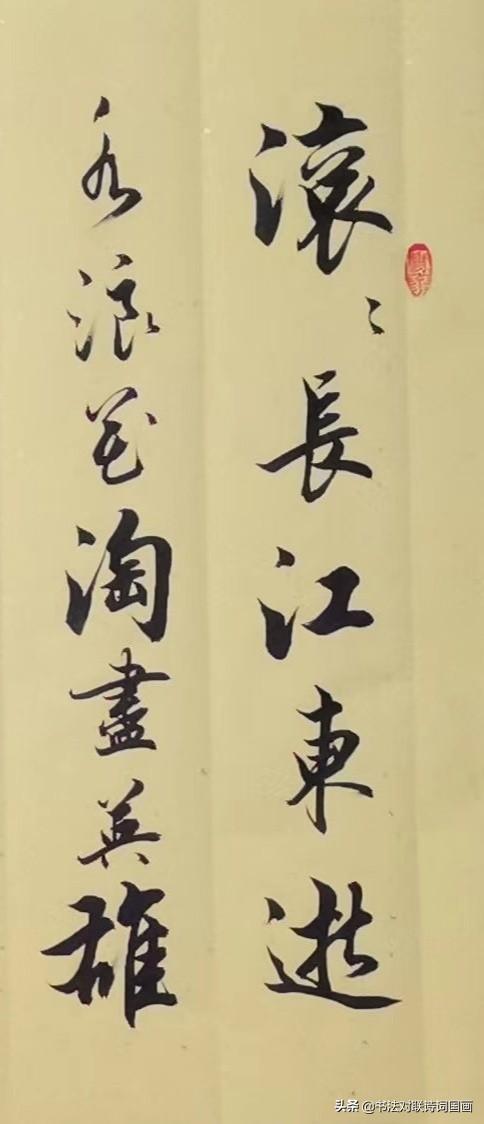 滚〻長江東逝
水浪花淘盡英雄
头条 @书法对联诗词国画